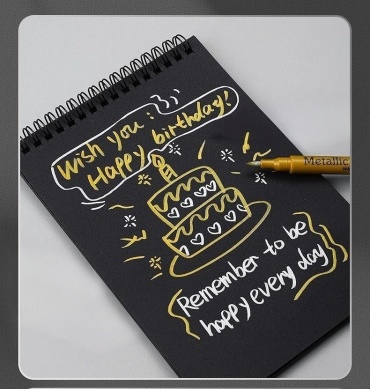 Wish you:
Happy birthday!
Metallic
Remember to be
happy every day